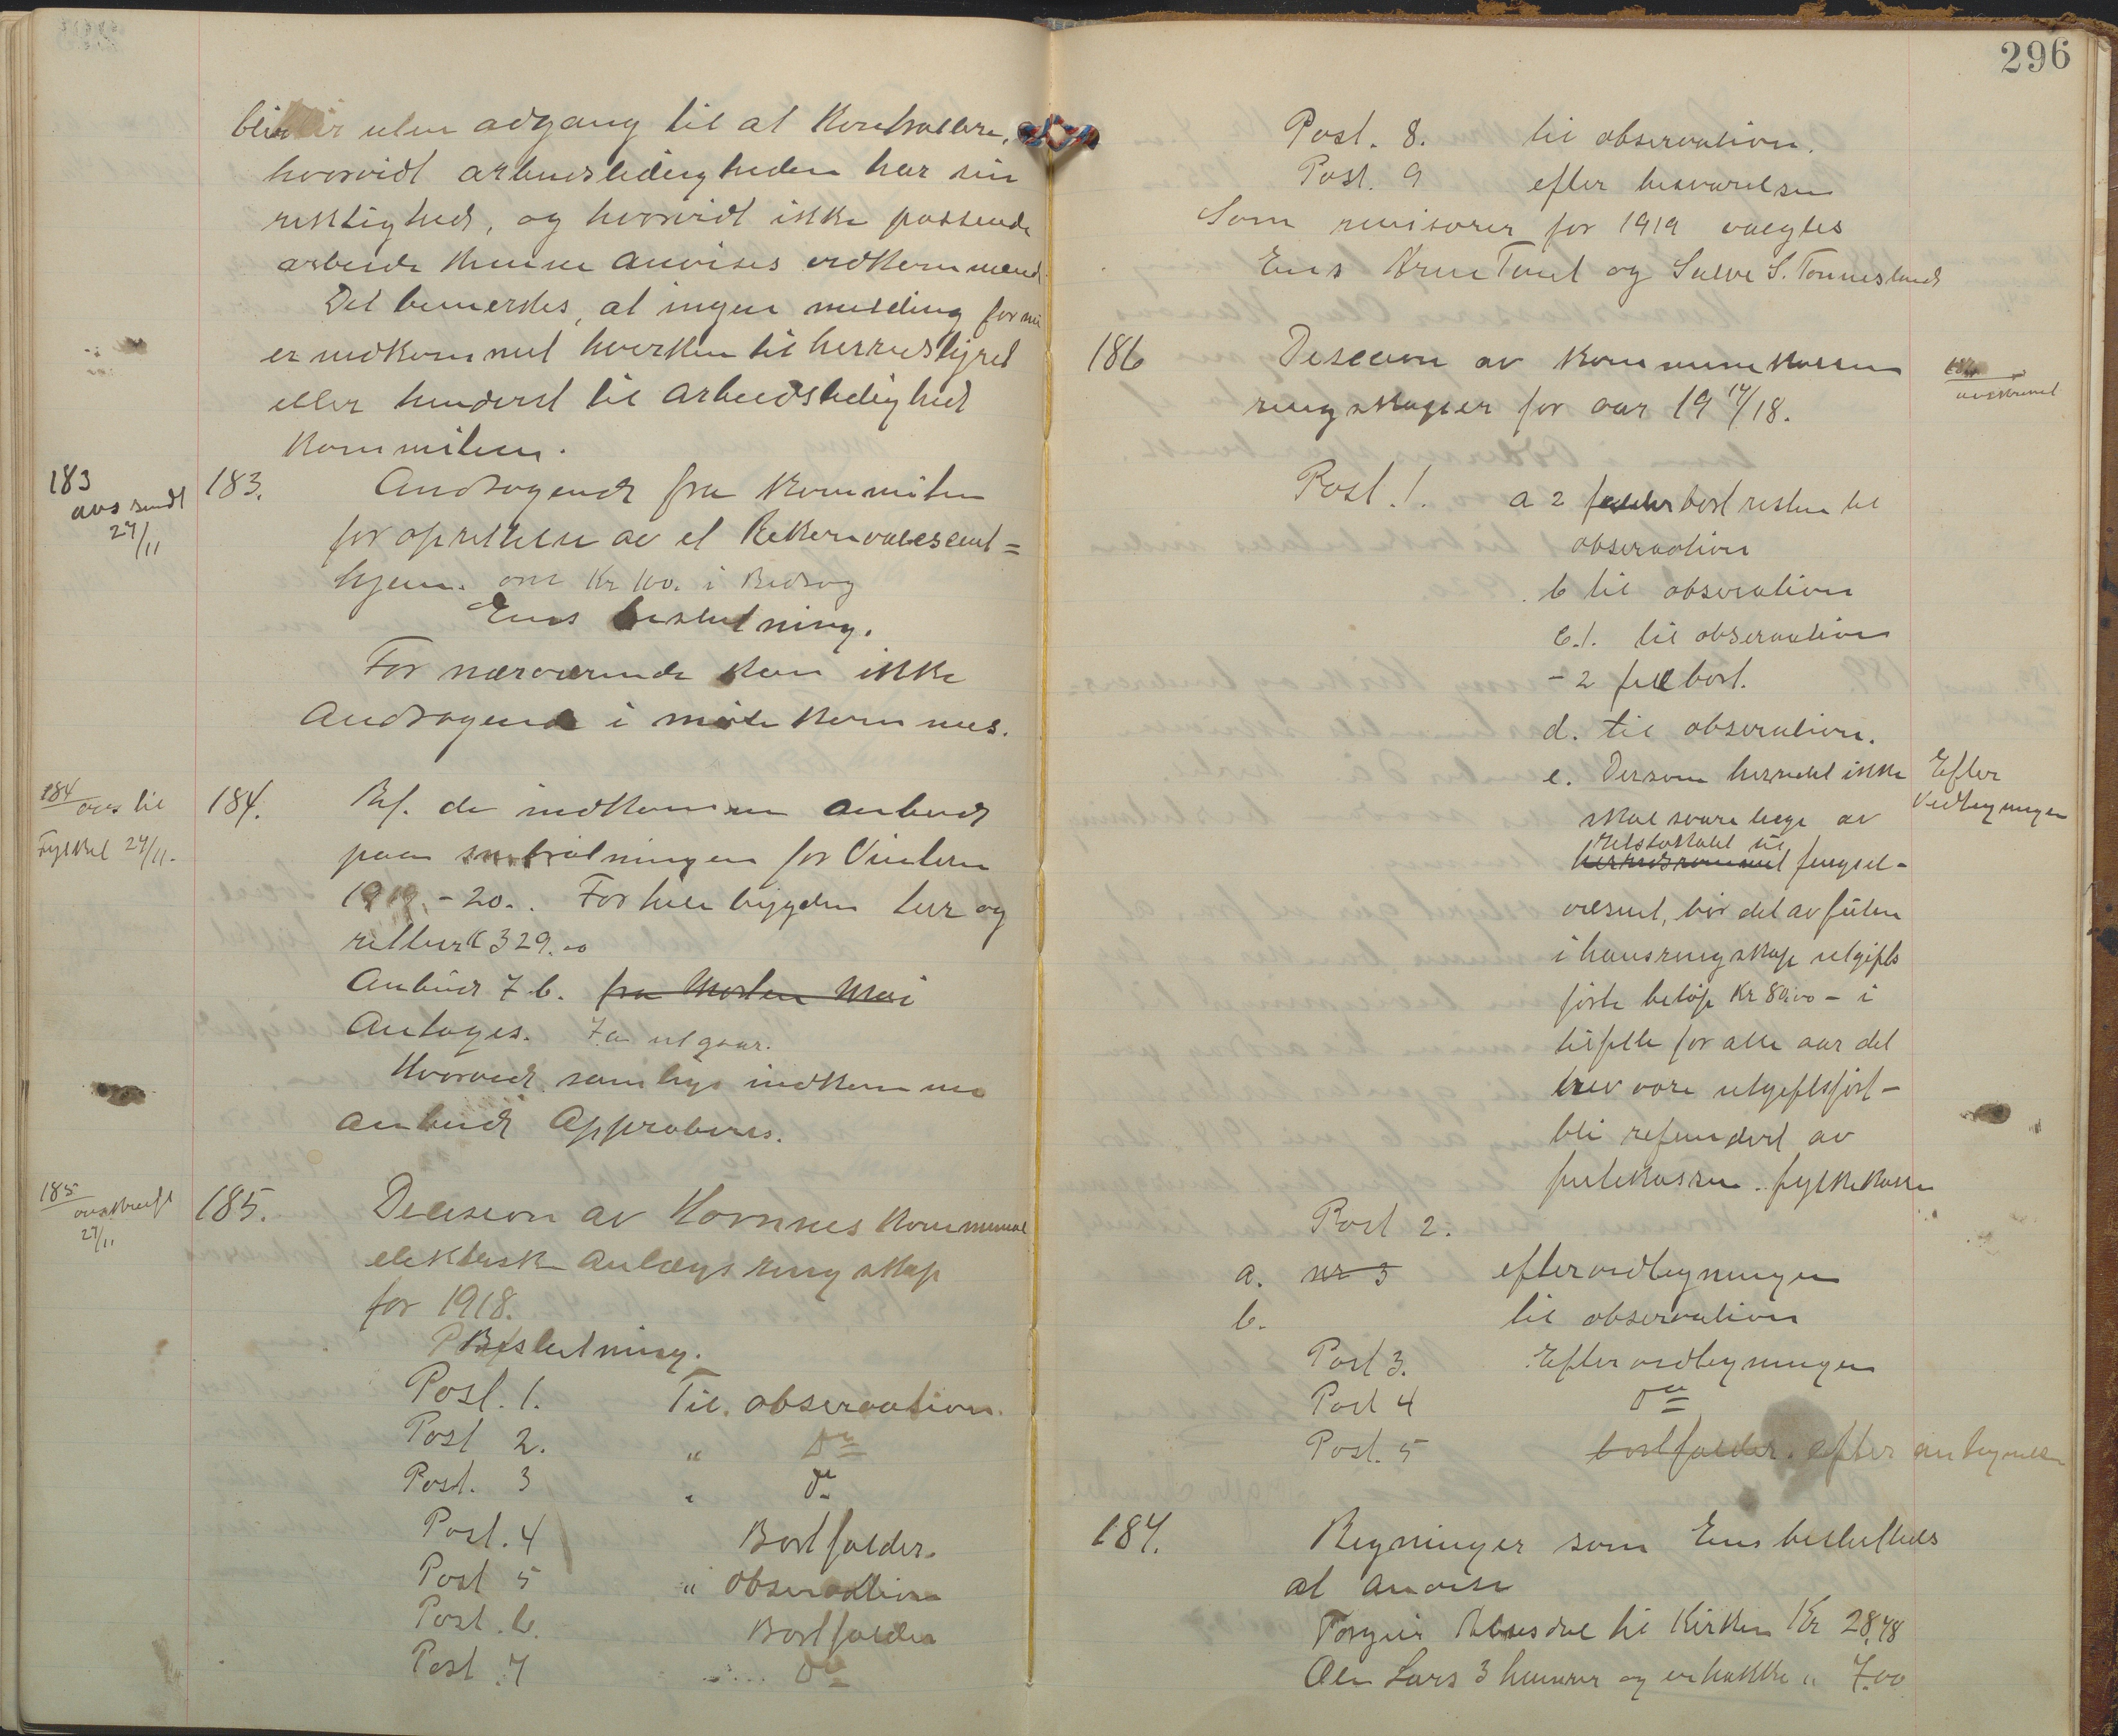 blir uten adgang til at kontrollere,
hvorvidt arbeidsledigheden har sin
riktighed, og hvorvidt ikke passende
arbeide kunne anvises vedkommend
Det bemerkes, at ingen melding
er indkommet hverken til herredstyret
eller henderst til arbeidsledighed
kommiteen.
183
avsendt
27/11
183. Andragende fra kommiteen
for oprettelse av et Rekonvalescent=
hjem. om Kr 100. i Bidrag
Ens beslutning.
For nærværende kan ikke
Andragende i møtekommes.
184
avs til
Fylket 27/11.
184. Ref. de indkomne anbud
paa snebrøtningen for Vinteren
1919-20. For hele bygden Leir og
329.00
Anbud 7 b. fra Morten Moi
Antages. 7 a utgaar.
Hvorved samtlige indkomne
anbud Approberes.
185
avskrift
27/11
185. Decision av Hornnes kommunal
elektrisk Anlægs rengskap
for 1918.
Beslutning.
Post. 1. Til observation.
Post 2. " Do
Post. 3 " Do
Post. 4 Bortfalder.
Post 5 " observation
Post. 6. Bortfalder
Post. 7 Do
296
Post. 8. til observation.
Post. 9 efter besvarelsen
Som revisorer for 1919 valgtes
Ens Arne Tveit og Salve S. Tønnesland
186 Decision av kommunekassen
rengskaper for aar 1917/18.
186
avskrevet
Post. 1. a 2 falder bort resten til
observation
b til observation
c.1. til observation
- 2 fall bort.
d. til observation.
e. Dersom herredet ikke
skal svare læge av
fengsel-
væsent, bør det av futen
i hans rengskap utgifts
førte beløp Kr 80.00 - i
tilfelle for alle aar det
vore utgiftsført -
bli refundert av
futekassen. fylkekassen
Efter
Vedtegningen
Post 2.
a. nr 3 efter vedtegningen
b. til observation
Post 3. Efter vedtegningen
Post 4 Do
Post. 5 bortfalder. efter antegnelsen
187. Regninger som Ens besluttedes
at anvise
til Kirken Kr 28,78
Ole Lars 3 hammer og en hakke " 7.00